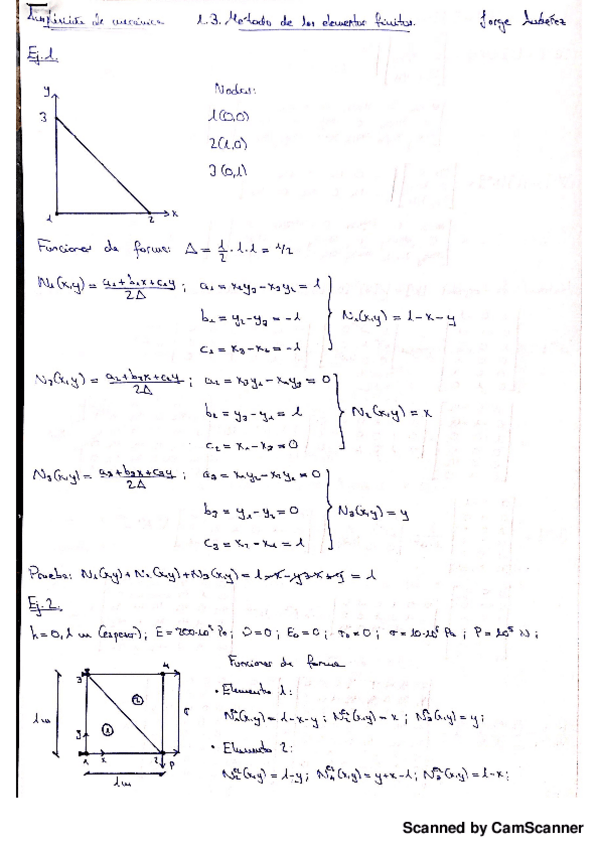 1.3. Metodo de los elementos finitos. Jorge
Ej.1.
y
3
1 2 x
Nodos:
1(0,0)
2(1,0)
3(0,1)
Funciones de forma: Δ = 1/2 · 1 · 1 = 1/2
N₁(x,y) = a₁+b₁x+c₁y / 2Δ ; a₁ = x₂y₃ - x₃y₂ = 1
b₁ = y₂ - y₃ = -1
c₁ = x₃ - x₂ = -1
N₁(x,y) = 1-x-y
N₂(x,y) = a₂+b₂x+c₂y / 2Δ ; a₂ = x₃y₁ - x₁y₃ = 0
b₂ = y₃ - y₁ = 1
c₂ = x₁ - x₃ = 0
N₂(x,y) = x
N₃(x,y) = a₃+b₃x+c₃y / 2Δ ; a₃ = x₁y₂ - x₂y₁ = 0
b₃ = y₁ - y₂ = 0
c₃ = x₂ - x₁ = 1
N₃(x,y) = y
Prueba: N₁(x,y)+N₂(x,y)+N₃(x,y) = 1-x-y+x+y = 1
Ej.2.
h=0,1 m (espesor); ν=0; ε₀=0; τ₀=0; P=10⁵ N;
3 4
2
1
σ
1m
y
1 x 2 P
1m
Funciones de forma
• Elemento 1:
N₁(x,y) = 1-x-y ; N₂(x,y) = x ; N₃(x,y) = y ;
• Elemento 2:
N₂(x,y) = 1-y ; N₄(x,y) = y+x-1 ; N₃(x,y) = 1-x ;
Scanned by CamScanner